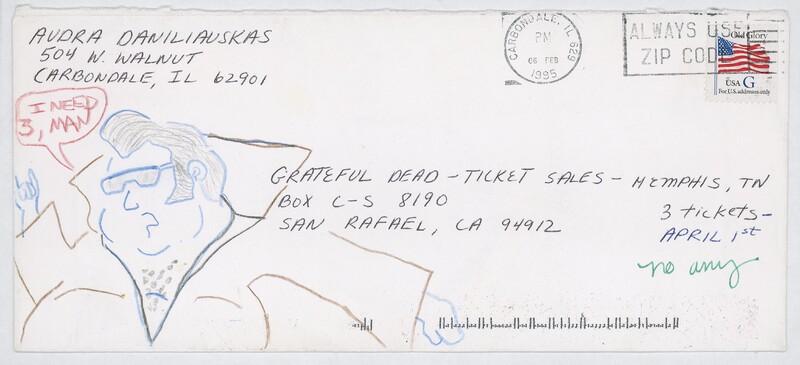 AUDRA DANILIAUSKAS
504 W. WALNUT
CARBONDALE, IL 62901
CARBONDALE, IL 629
PM
06 FEB
1995
ALWAYS USE
ZIP CODE
Old Glory
USA G
For U.S. addresses only
I NEED
3, MAN
GRATEFUL DEAD - TICKET SALES - MEMPHIS, TN
BOX C-S 8190
3 tickets-
SAN RAFAEL, CA 94912
APRIL 1st
no any